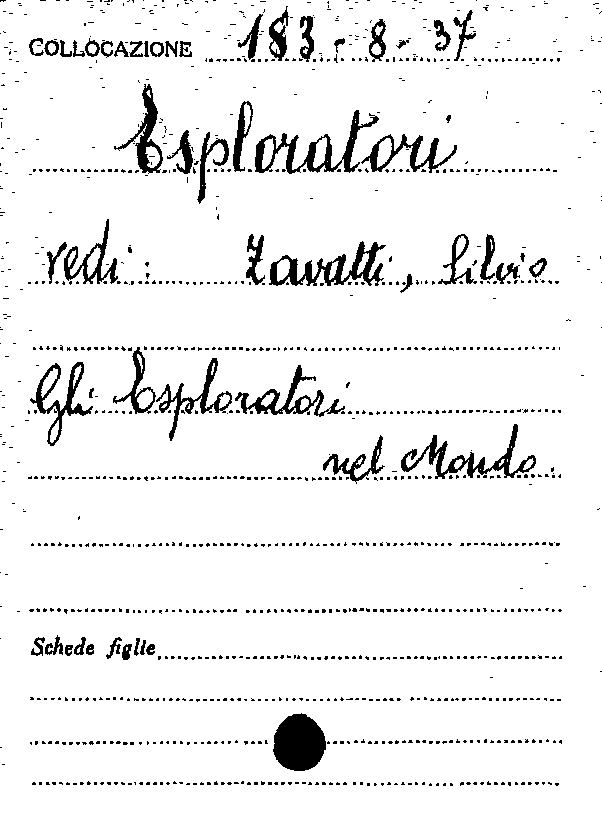 COLLOCAZIONE 183-8-37
Esploratori
vedi: Zavatti, Silvio
Gli Esploratori
nel Mondo.
Schede figlie